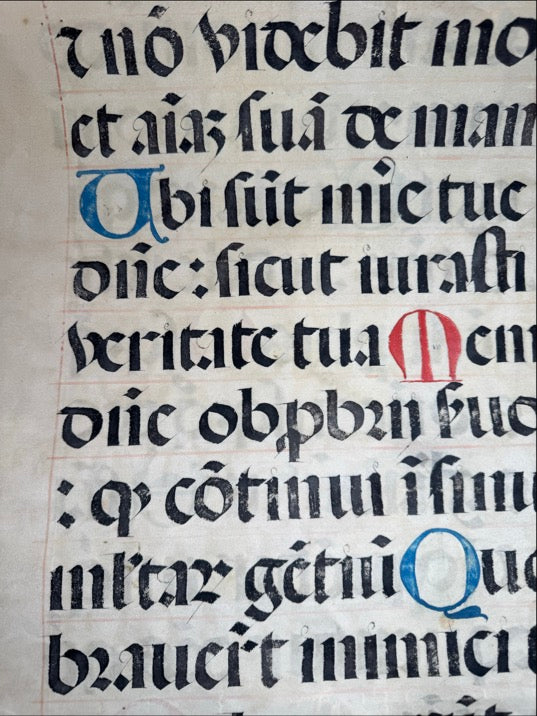 ⁊ nõ videbit mo
et aı̃aʒ suã de man
Ubi sũt mĩe tue
dñe: sicut iurasti
veritate tua Mem
dñe obꝓbrii suo
: qꝫ cõtinui ĩ sinu
mltaꝝ gẽtiũ Que
brauer̃t inimici t